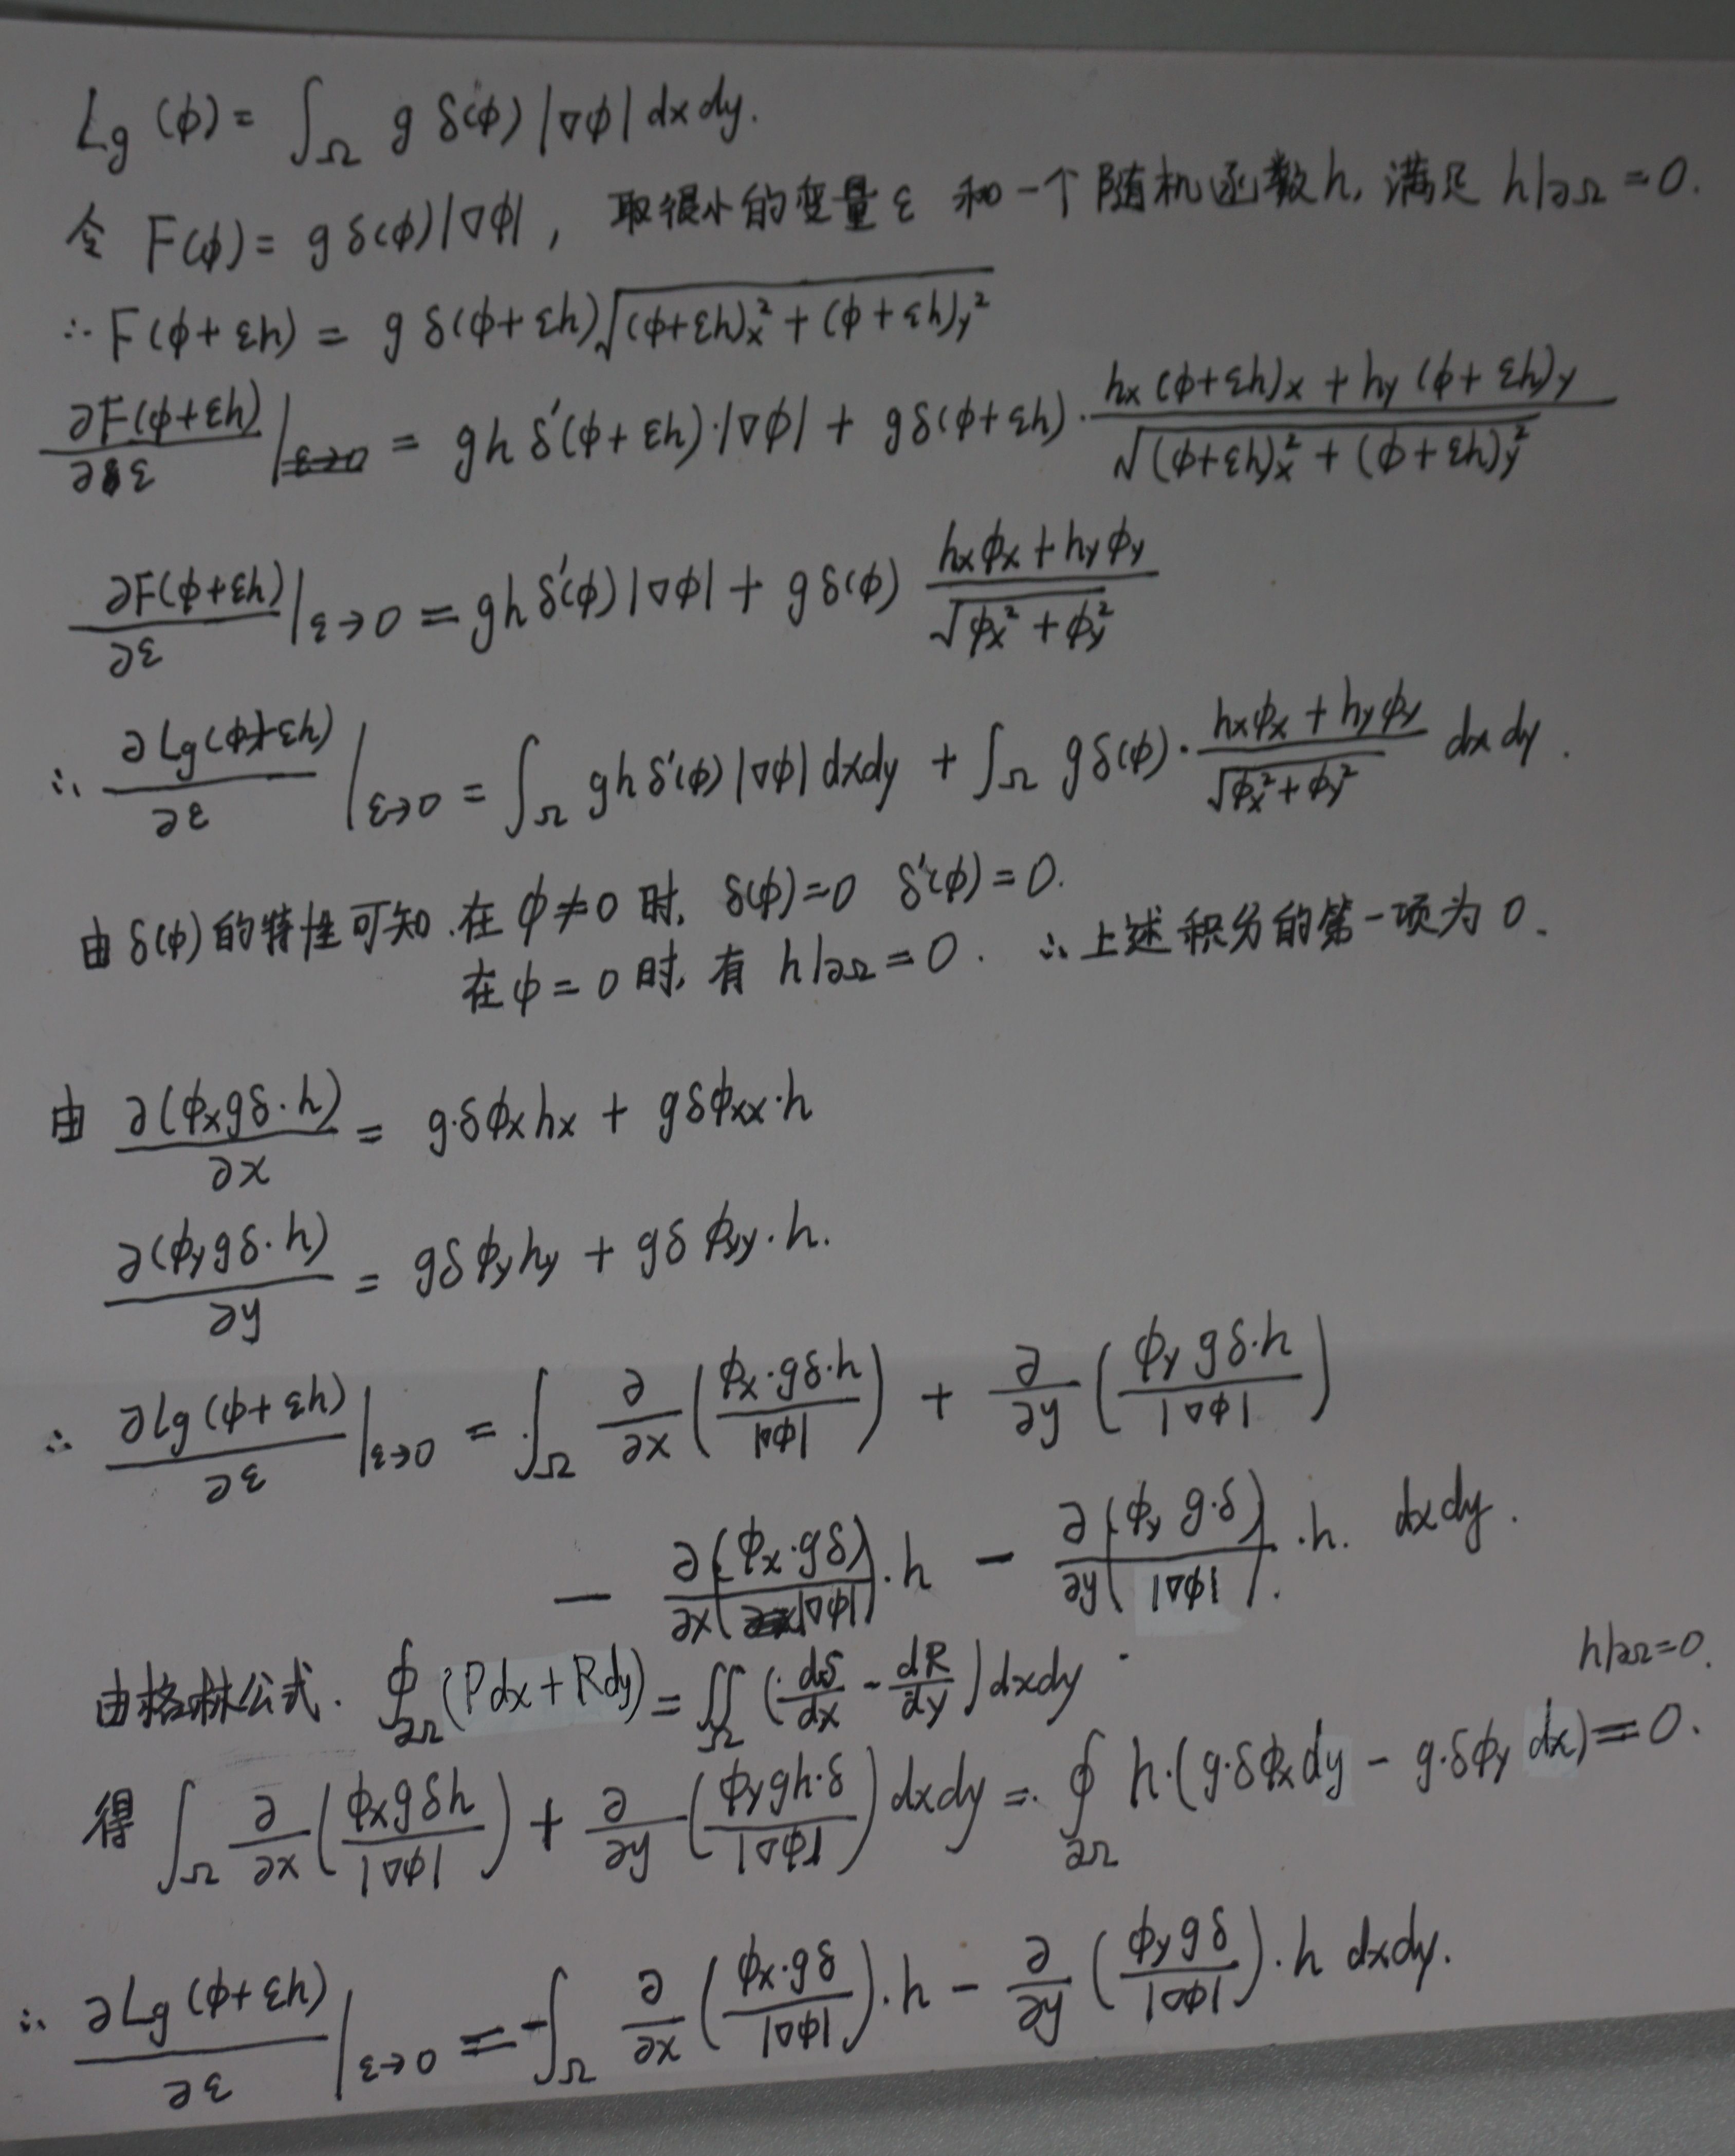 Lg (ϕ) = ∫_Ω g δ(ϕ) |∇ϕ| dx dy.
令 F(ϕ) = g δ(ϕ) |∇ϕ| , 取很小的变量 ε 和一个随机函数 h, 满足 h|∂Ω = 0.
∴ F(ϕ+εh) = g δ(ϕ+εh) √((ϕ+εh)_x² + (ϕ+εh)_y²)
∂F(ϕ+εh)/∂ε | = gh δ'(ϕ+εh)·|∇ϕ| + gδ(ϕ+εh)· (h_x (ϕ+εh)_x + h_y (ϕ+εh)_y)/√((ϕ+εh)_x² + (ϕ+εh)_y²)
∂F(ϕ+εh)/∂ε |_ε→0 = gh δ'(ϕ) |∇ϕ| + g δ(ϕ) (h_xϕ_x + h_yϕ_y)/√(ϕ_x² + ϕ_y²)
∴ ∂Lg(ϕ+εh)/∂ε |_ε→0 = ∫_Ω gh δ'(ϕ) |∇ϕ| dxdy + ∫_Ω gδ(ϕ)· (h_xϕ_x + h_yϕ_y)/√(ϕ_x² + ϕ_y²) dx dy .
由 δ(ϕ) 的特性可知. 在 ϕ ≠ 0 时, δ(ϕ)=0 δ'(ϕ) = 0.
在 ϕ = 0 时, 有 h|∂Ω = 0 . ∴ 上述积分的第一项为 0 .
由 ∂(ϕ_x gδ·h)/∂x = g·δϕ_x h_x + gδϕ_xx·h
∂(ϕ_y gδ·h)/∂y = gδϕ_y h_y + gδ ϕ_yy·h.
∴ ∂Lg(ϕ+εh)/∂ε |_ε→0 = ∫_Ω ∂/∂x (ϕ_x·gδ·h/|∇ϕ|) + ∂/∂y (ϕ_y gδ·h/|∇ϕ|)
− ∂/∂x (ϕ_x·gδ/|∇ϕ|)·h − ∂/∂y (ϕ_y g·δ/|∇ϕ|)·h. dxdy .
由格林公式. ∮_∂Ω (Pdx + Rdy) = ∬_Ω (dδ/dx − dR/dy) dxdy
h|∂Ω=0.
得 ∫_Ω ∂/∂x (ϕ_x gδh/|∇ϕ|) + ∂/∂y (ϕ_y gh·δ/|∇ϕ|) dxdy = ∮_∂Ω h·(g·δϕ_x dy − g·δϕ_y dx) = 0.
∴ ∂Lg(ϕ+εh)/∂ε |_ε→0 = −∫_Ω ∂/∂x (ϕ_x·gδ/|∇ϕ|)·h − ∂/∂y (ϕ_y gδ/|∇ϕ|)·h dxdy.